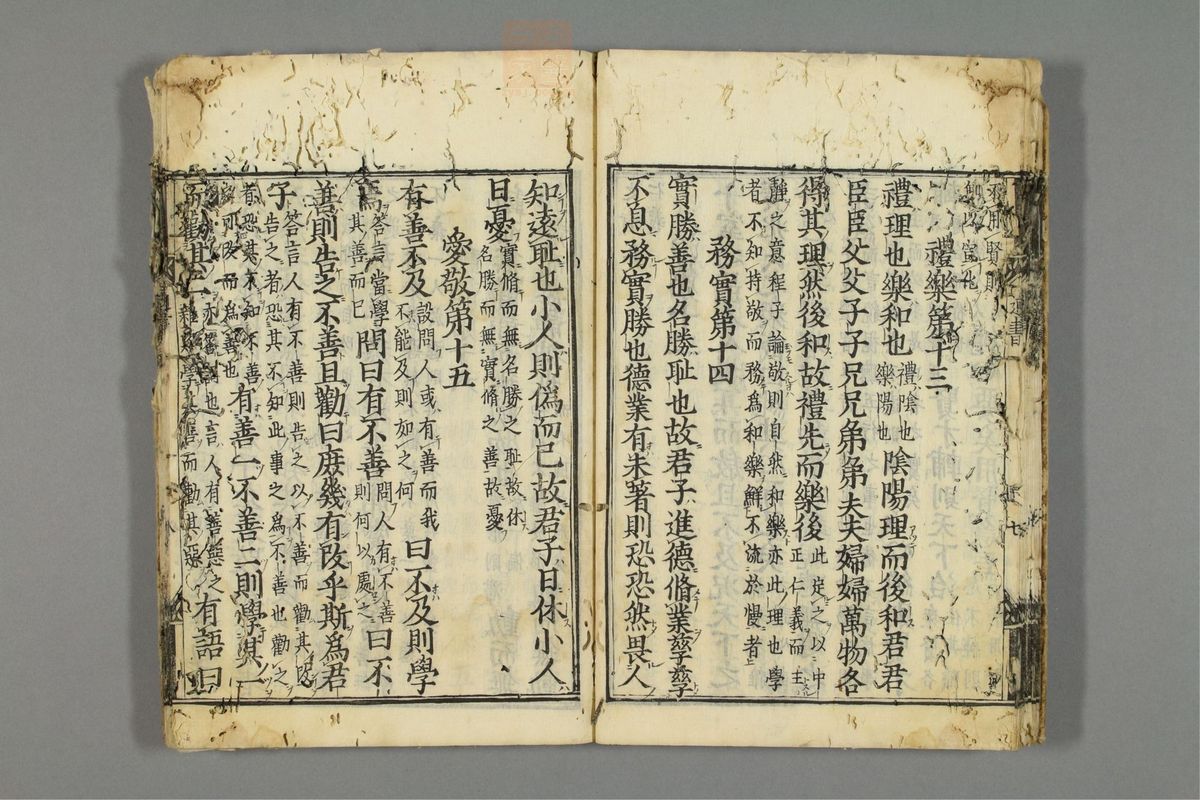 禮樂第十三
禮理也樂和也
禮陰也
樂陽也
陰陽理而後和君君
臣臣父父子子兄兄弟弟夫夫婦婦萬物各
得其理然後和故禮先而樂後
此定之以中
正仁義而主
靜之意程子論敬則自然和樂亦此理也學
者不知持敬而務爲和樂鮮不流於慢者
務實第十四
實勝善也名勝耻也故君子進德脩業孳孳
不息務實勝也德業有未著則恐恐然畏人
知遠耻也小人則僞而已故君子日休小人
日憂
實脩而無名勝之耻故休
名勝而無實脩之善故憂
愛敬第十五
有善不及
設問人或有善而我
不能及則如之何
曰不及則學
焉
答言當學
其善而已
問曰有不善
問人有不善
則何以處之
曰不
善則告之不善且勸曰庻幾有改乎斯爲君
子
答言人有不善則告之以不善而勸其改
告之者恐其不知此事之爲不善也勸之
者恐其不知不善
之可改而爲善也
有善一不善二則學其一
而勸其二
亦答詞也言人有善惡之
學其善而勸其惡
有語曰